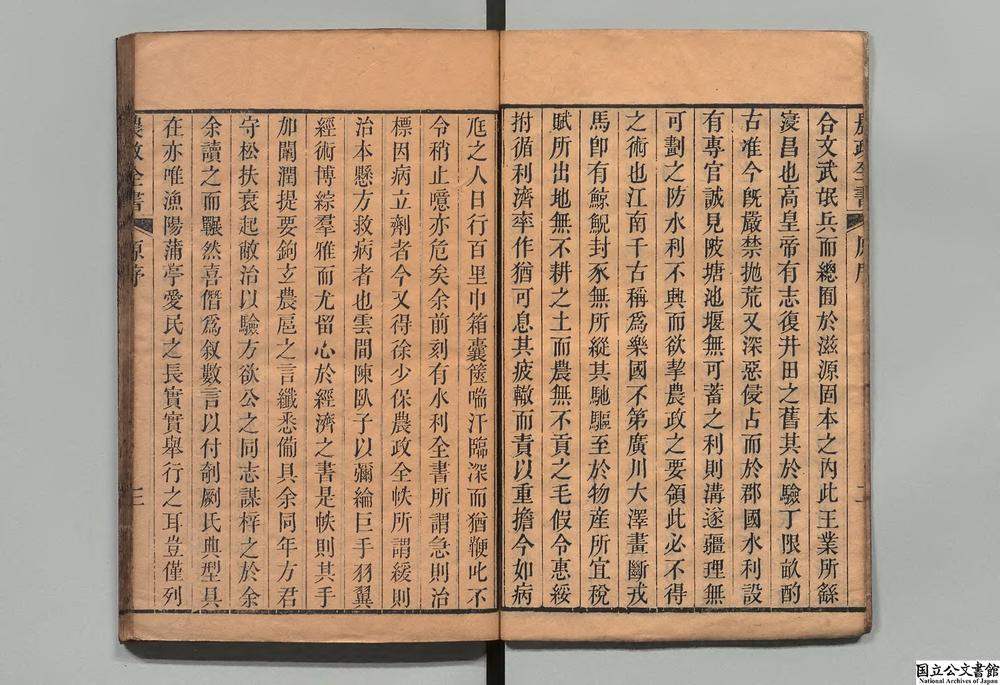 農政全書 原序 二
合文武氓兵而總囿於滋源固本之內此王業所繇
寖昌也高皇帝有志復井田之舊其於驗丁限畝酌
古准今旣嚴禁拋荒又深惡侵占而於郡國水利設
有專官誠見陂塘池堰無可蓄之利則溝遂疆理無
可劃之防水利不興而欲挈農政之要領此必不得
之術也江南千古稱爲樂國不第廣川大澤畫斷戎
馬卽有鯨鯢封豕無所縱其馳驅至於物産所宜稅
賦所出地無不耕之土而農無不貢之毛假令惠綏
拊循利濟率作猶可息其疲轍而責以重擔今如病
尩之人日行百里巾箱囊篋喘汗臨深而猶鞭叱不
令稍止噫亦危矣余前刻有水利全書所謂急則治
標因病立劑者今又得徐少保農政全帙所謂緩則
治本懸方救病者也雲間陳臥子以彌綸巨手羽翼
經術博綜羣雅而尤留心於經濟之書是帙則其手
加闡潤提要鉤玄農扈之言纖悉備具余同年方君
守松扶衰起敝治以驗方欲公之同志謀梓之於余
余讀之而囅然喜僭爲敘數言以付剞劂氏典型具
在亦唯漁陽蒲亭愛民之長實實舉行之耳豈僅列
農政全書 原序 三
国立公文書館
National Archives of Japan